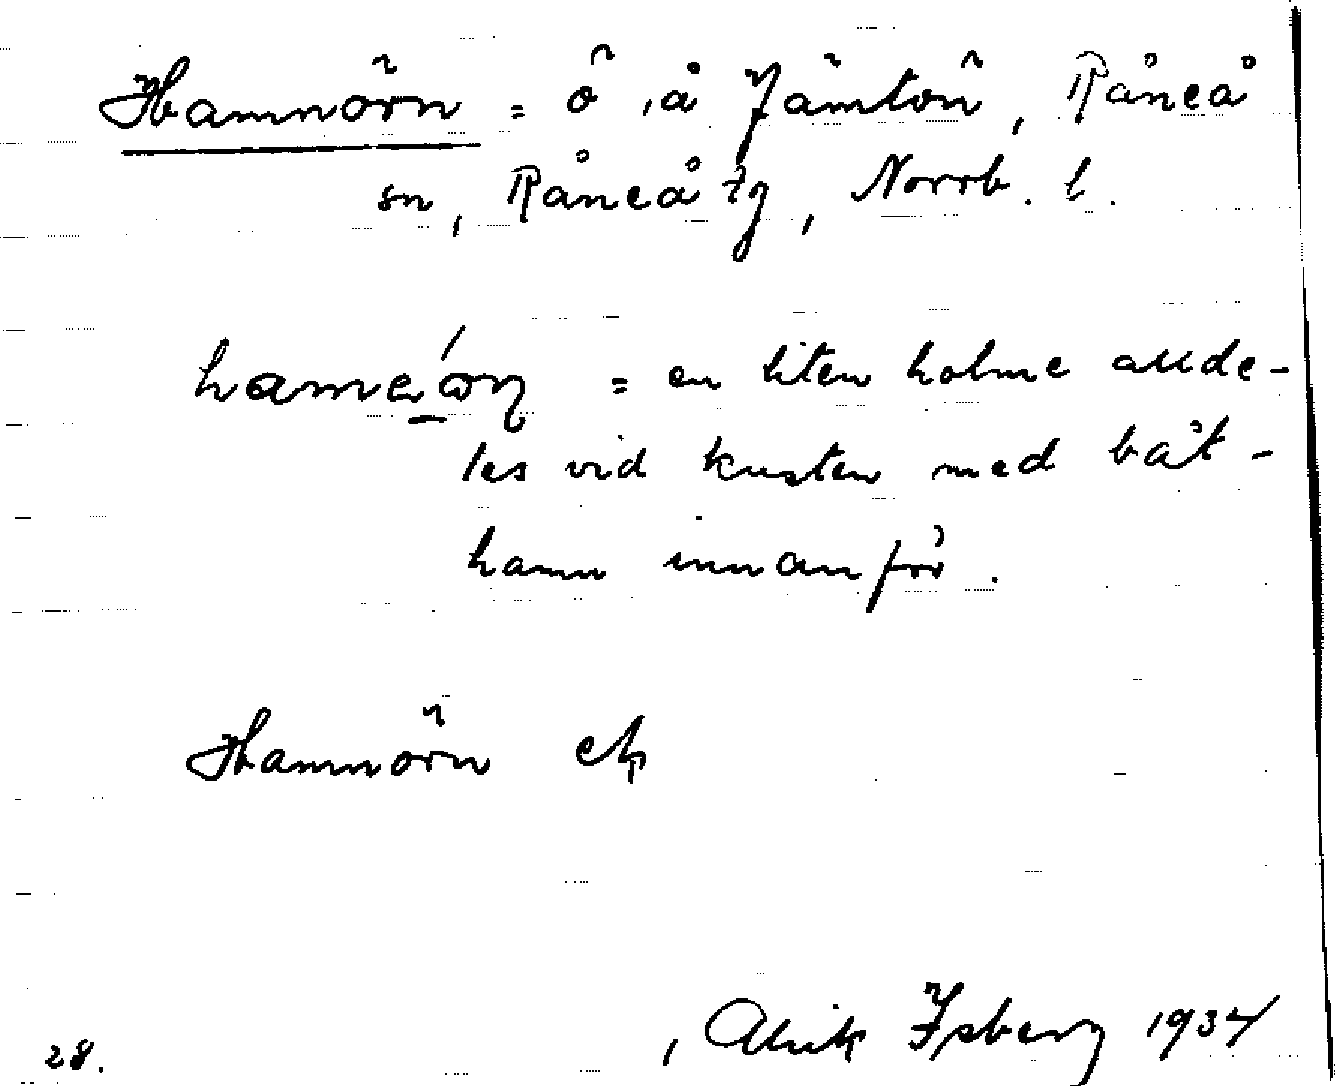 Hamnörn = ö, å Jämtön, Råneå
sn, Råneå tg, Norrb. l.
= en liten holme allde-
les vid kusten med båt-
hamn innanför.
Hamnörn ek
Alrik Isberg 1934
28.